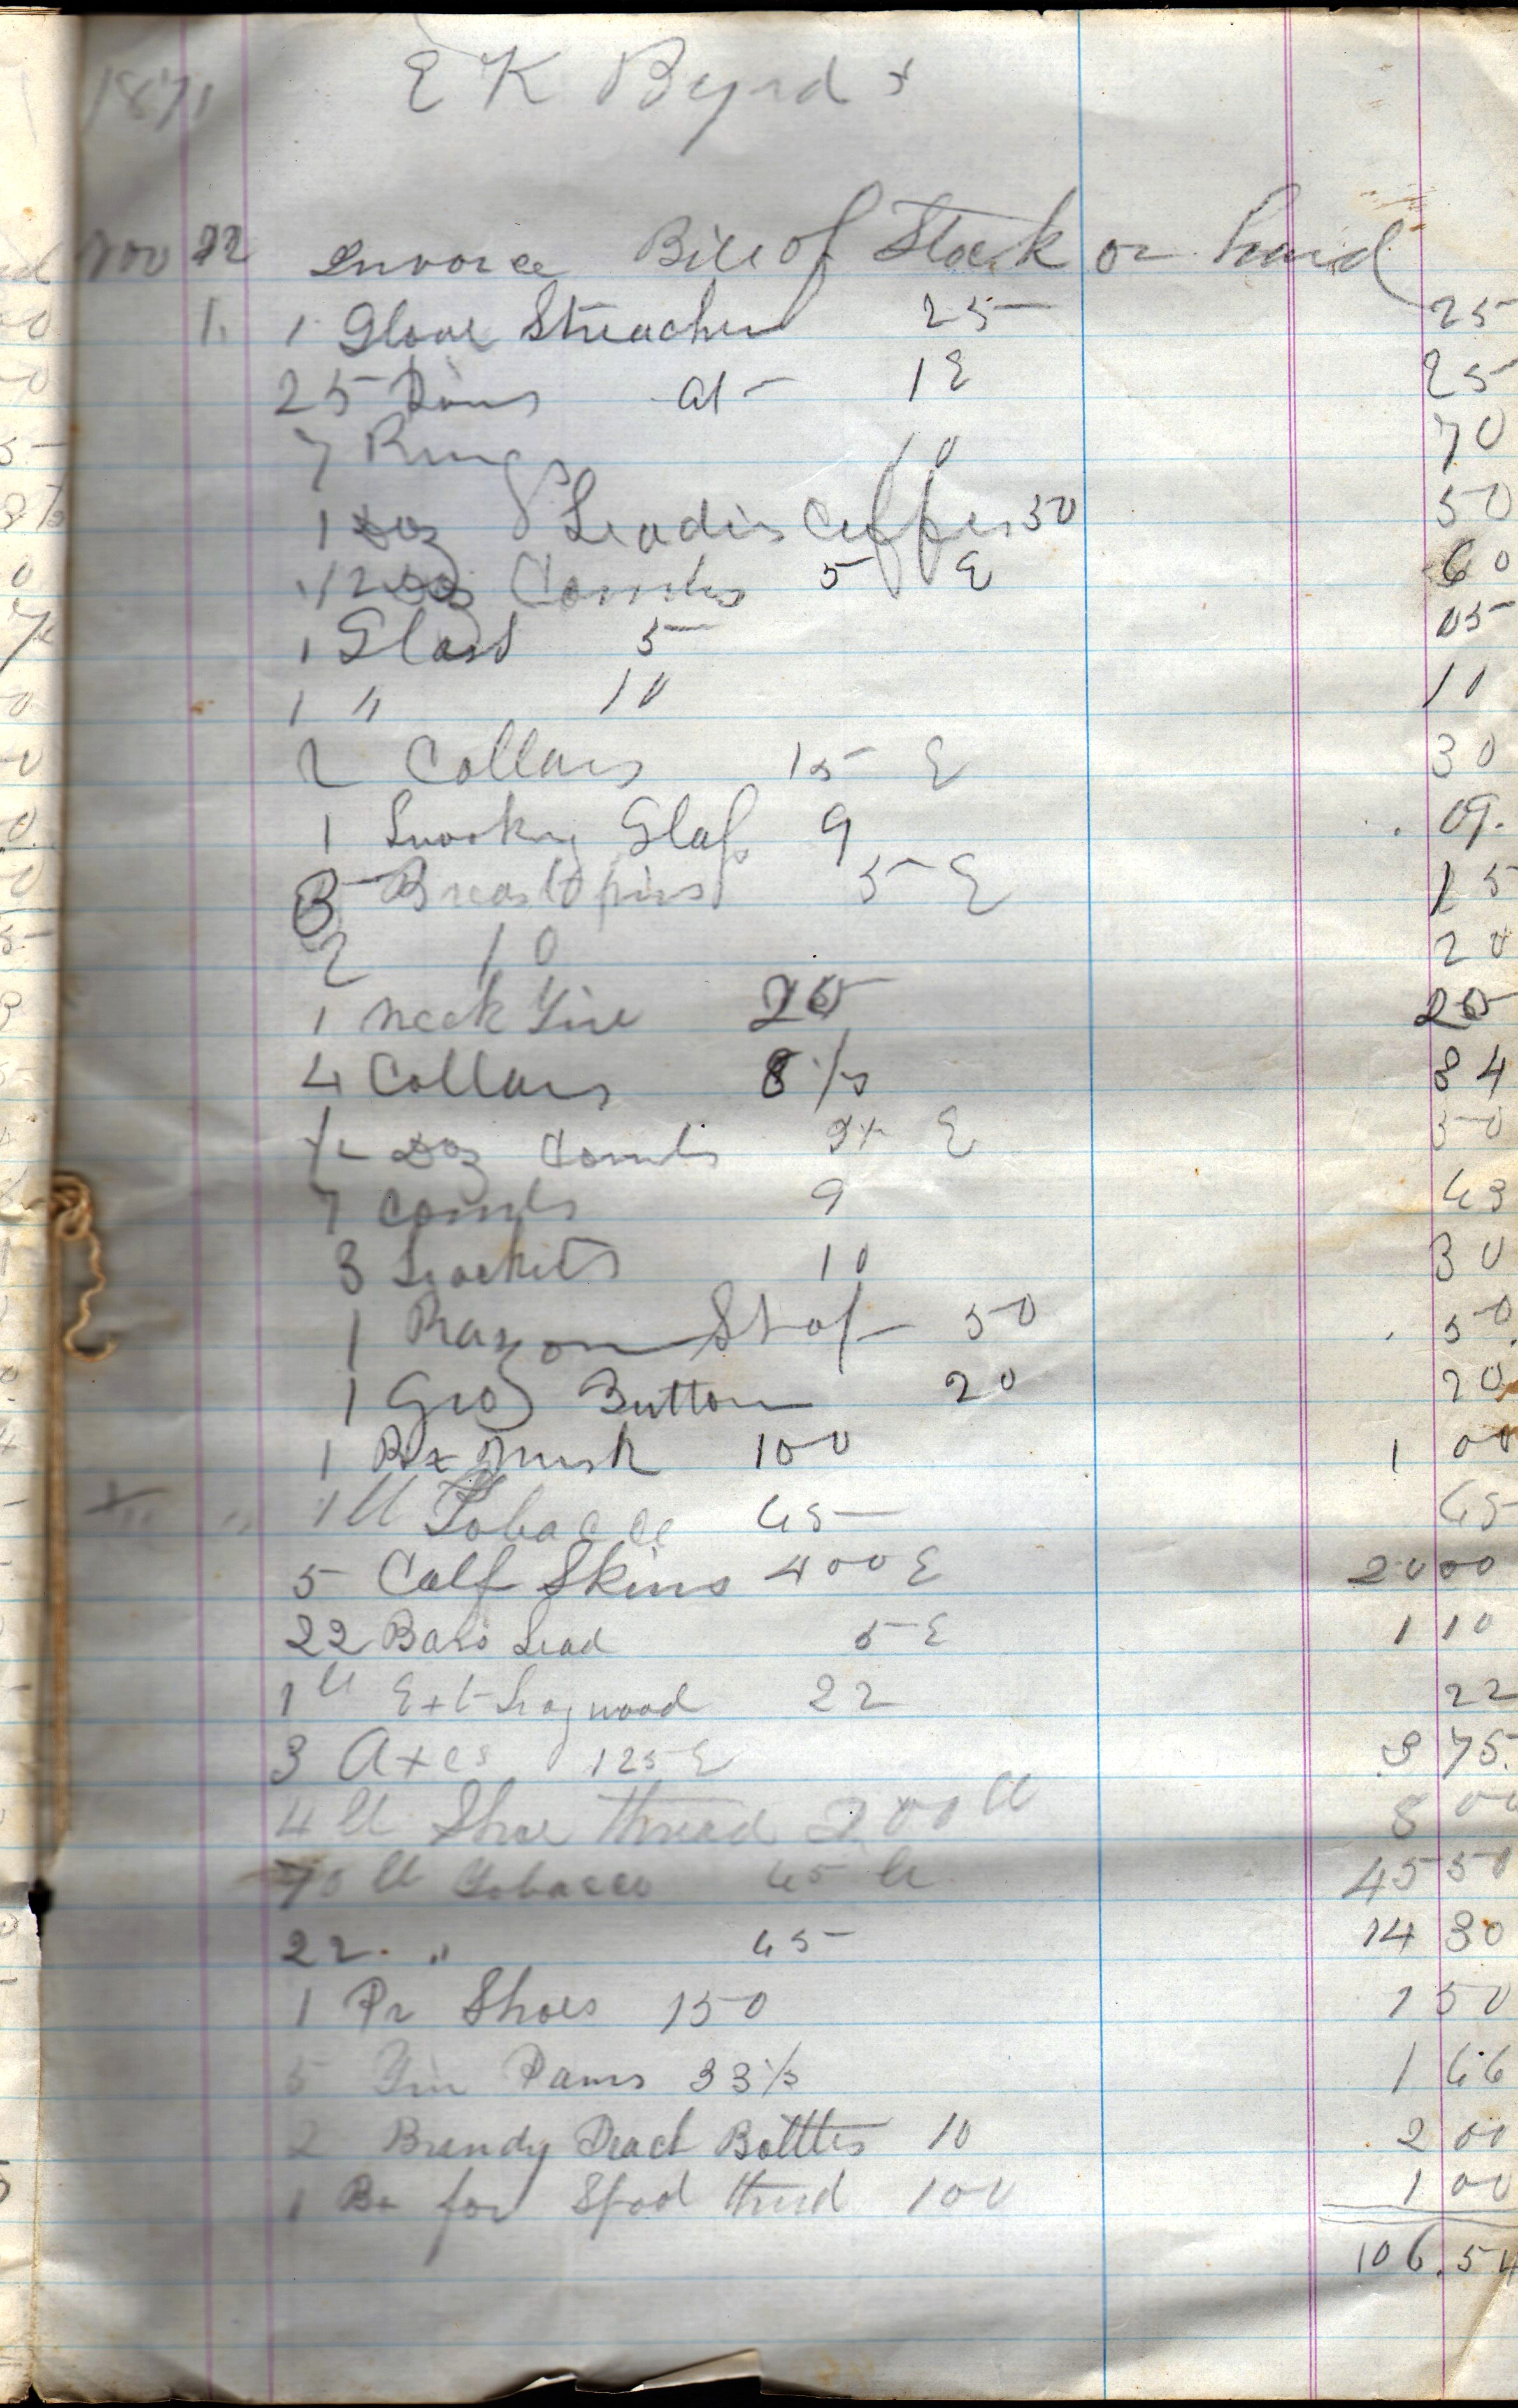 1871 E K Byrd s
Nov 22 Invoice Bill of Stock on hand
1. 1 Glove Streacher 25 25
25 at 1 E 25
7 Ring 10 70
1 Doz Leadis Cuffes 50 50
1/2 Doz Combs 5 E 60
1 Glass 5 05
1 " 10 10
2 Collars 15 E 30
1 Looking Glass 9 09.
3 Breast pins 5 E 15
2 10 20
1 neck Tire 25 25
4 Collars 8 1/3 34
1/2 Doz Combs E 50
7 Combs 9 63
3 Lockets 10 30
1 Razor Strop 50 50
1 Gros Button 20 20
1 Bx Musk 100 1 00
1 ll Tobacco 65 65
5 Calf Skins 400 E 20 00
22 Bars Lead 5 E 1 10
1 ll Ext Logwood 22 22
3 Axes 125 E 3 75
4 ll Shoe thread 200 ll 8 00
70 ll Tobacco 65 ll 45 50
22 " 65 14 30
1 Pr Shoes 150 1 50
5 Tin Pans 33 1/3 1 66
2 Brandy Bottles 10 2 00
1 Bx for Spool thred 100 1 00
106.54